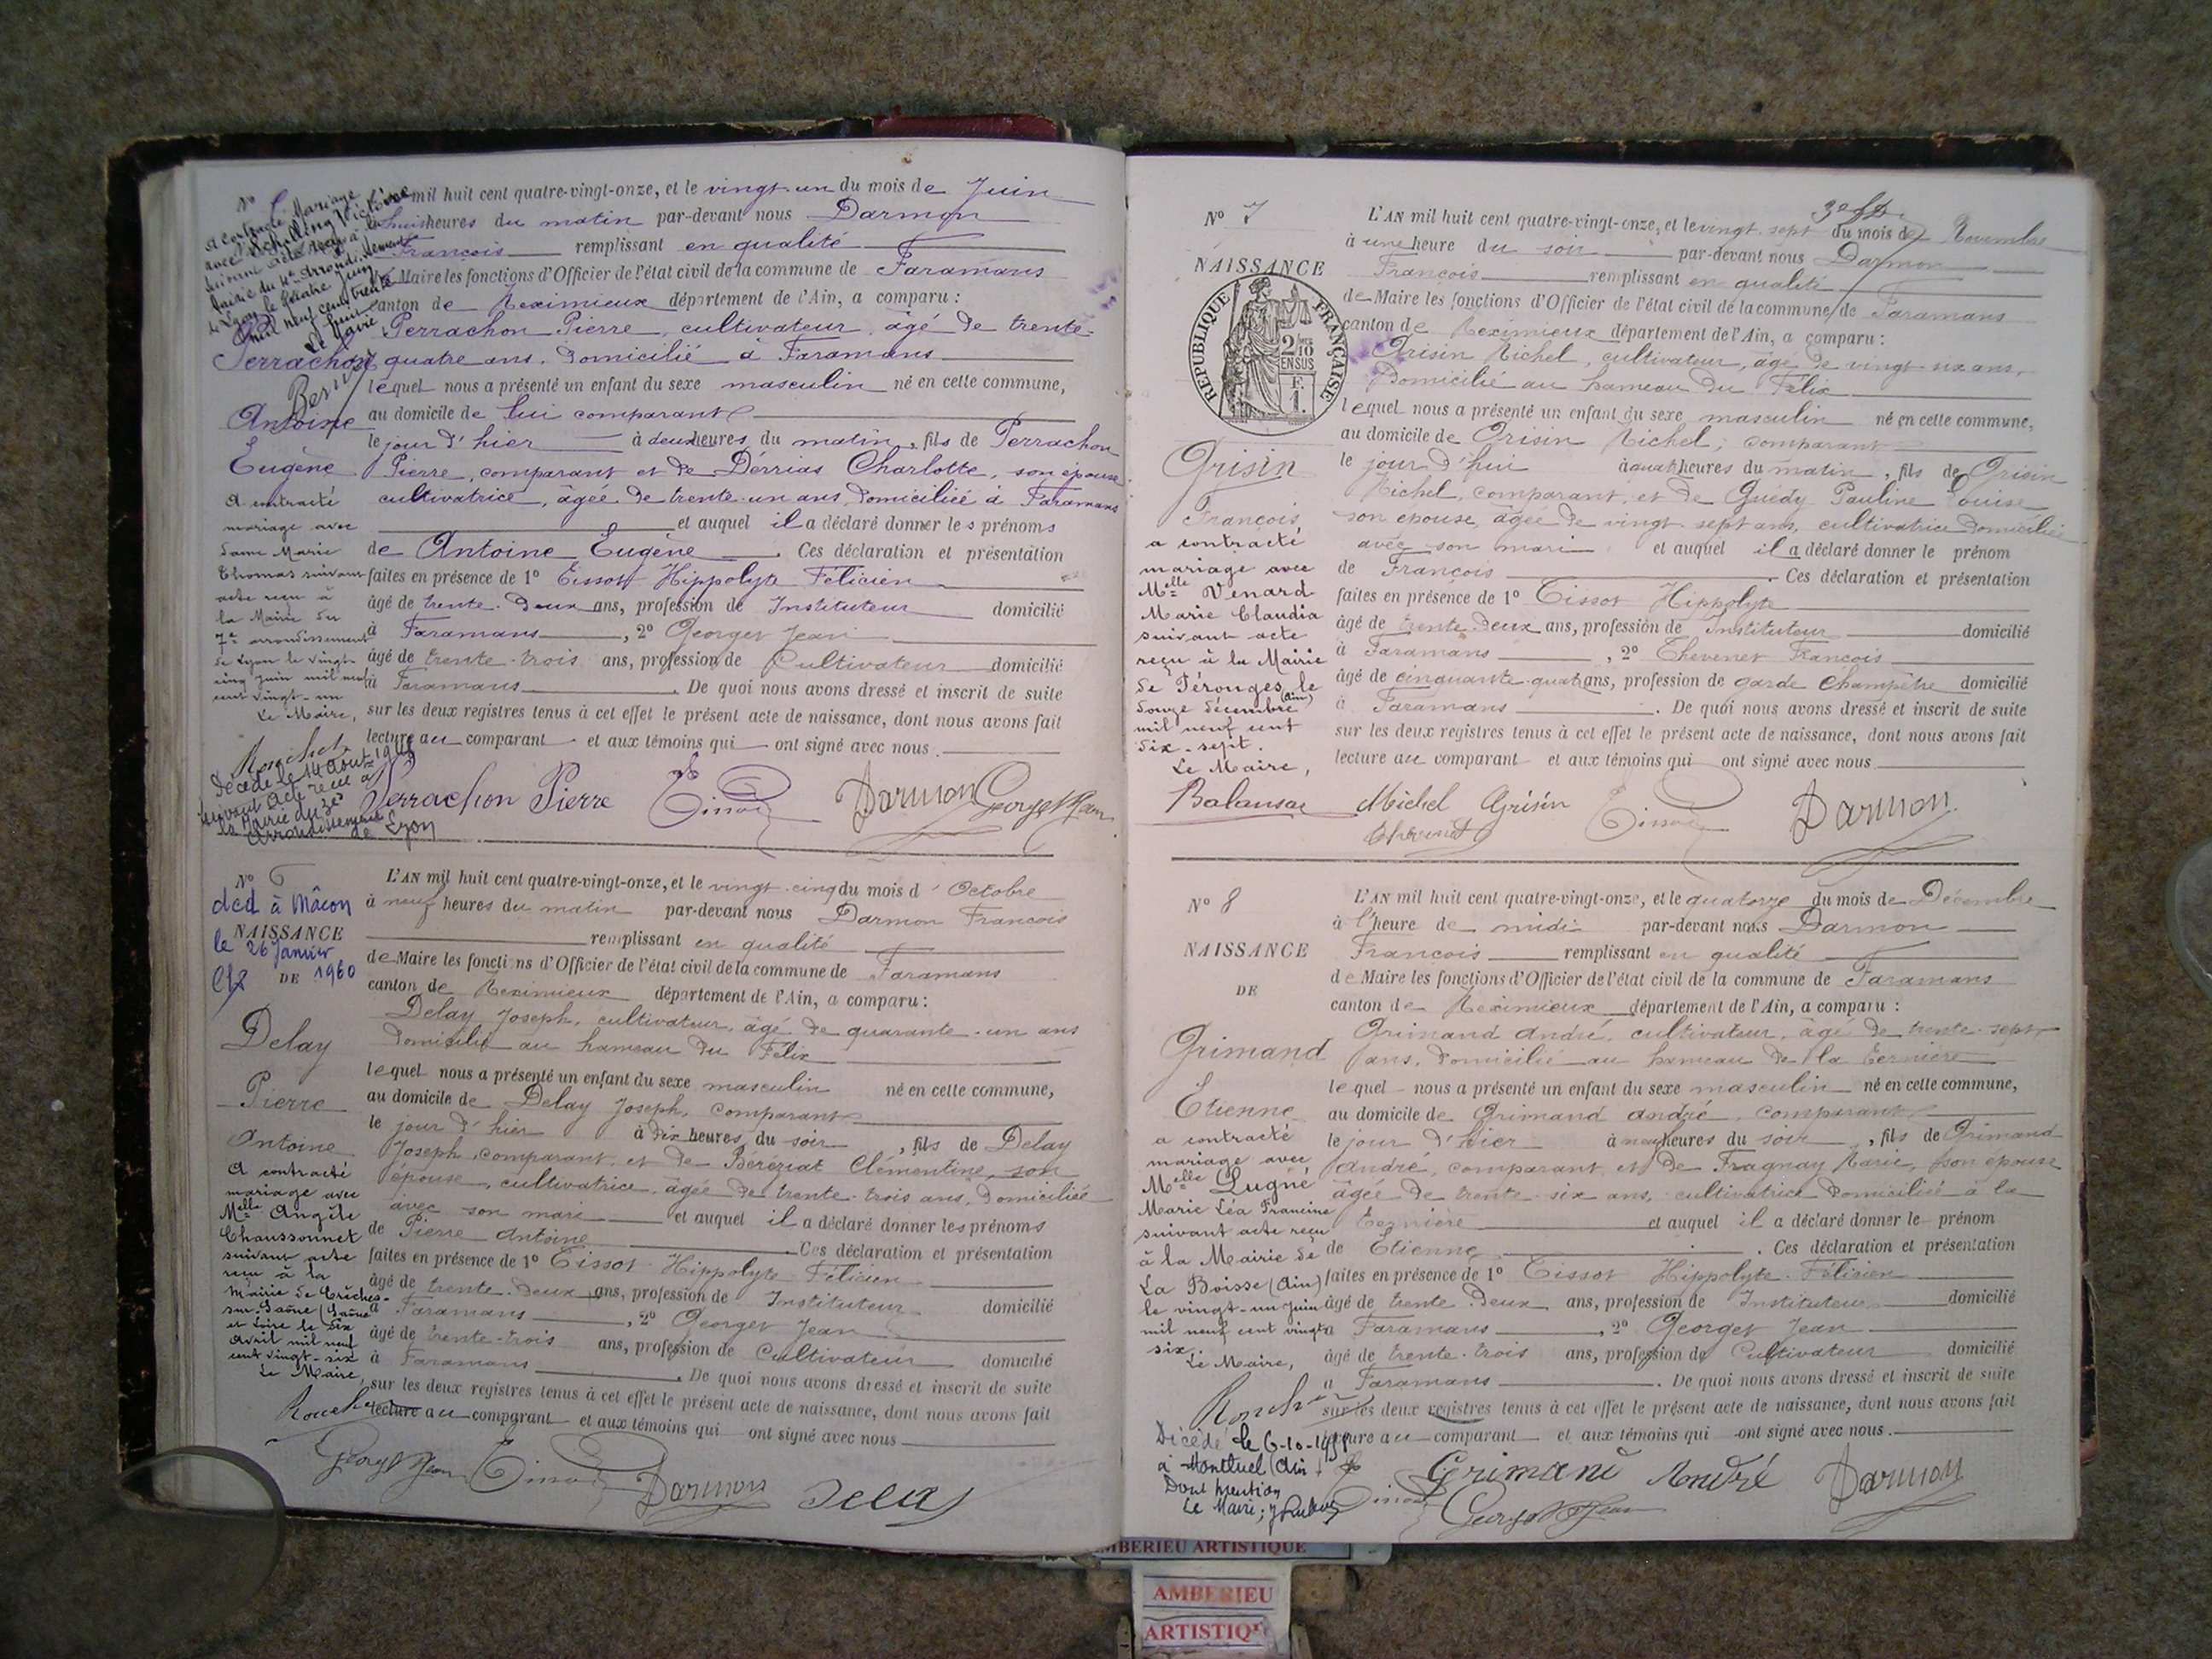 mil huit cent quatre-vingt-onze, et le vingt-un du mois de Juin
heures du matin par-devant nous Darmon
François remplissant en qualité
de Maire les fonctions d'Officier de l'état civil de la commune de Faramans
canton de Meximieux département de l'Ain, a comparu :
Perrachon Pierre, cultivateur, âgé de trente-
quatre ans, domicilié à Faramans
lequel nous a présenté un enfant du sexe masculin né en cette commune,
au domicile de lui comparant
le jour d'hier à deux heures du matin, fils de Perrachon
Pierre, comparant et de Derrias Charlotte, son épouse
cultivatrice, âgée de trente-un ans, domiciliée à Faramans
et auquel il a déclaré donner les prénoms
de Antoine Eugène. Ces déclaration et présentation
faites en présence de 1º Tissot Hippolyte Félicien
âgé de trente-deux ans, profession de Instituteur domicilié
à Faramans, 2º Georget Jean
âgé de trente-trois ans, profession de Cultivateur domicilié
à Faramans. De quoi nous avons dressé et inscrit de suite
sur les deux registres tenus à cet effet le présent acte de naissance, dont nous avons fait
lecture au comparant et aux témoins qui ont signé avec nous
Perrachon
Antoine
Eugène
A contracté
mariage avec
dame Marie
Thomas suivant
acte reçu à
la Mairie du
7e arrondissement
de Lyon le vingt-
cinq juin mil neuf
cent vingt-un
Le Maire,
Décédé le 14 août
suivant acte reçu à
la Mairie du
arrondissement
de Lyon
Perrachon Pierre Tissot Darmon Georget Jean
Nº 6
dcd à Mâcon
NAISSANCE
le 26 Janvier
DE 1960
Delay
Pierre
Antoine
A contracté
mariage avec
Melle Angèle
Chaussonnet
suivant acte
reçu à la
Mairie de Crêches-
sur-Saône (Saône
et Loire le six
avril mil neuf
cent vingt-six
Le Maire,
L'AN mil huit cent quatre-vingt-onze, et le vingt-cinq du mois d'Octobre
à neuf heures du matin par-devant nous Darmon François
remplissant en qualité
de Maire les fonctions d'Officier de l'état civil de la commune de Faramans
canton de Meximieux département de l'Ain, a comparu :
Delay Joseph, cultivateur, âgé de quarante-un ans
domicilié au hameau du Félix
lequel nous a présenté un enfant du sexe masculin né en cette commune,
au domicile de Delay Joseph, comparant
le jour d'hier à dix heures du soir, fils de Delay
Joseph, comparant, et de Béréziat Clémentine, son
épouse, cultivatrice, âgée de trente-trois ans, domiciliée
avec son mari et auquel il a déclaré donner les prénoms
de Pierre Antoine Ces déclaration et présentation
faites en présence de 1º Tissot Hippolyte Félicien
âgé de trente-deux ans, profession de Instituteur domicilié
à Faramans, 2º Georget Jean
âgé de trente-trois ans, profession de Cultivateur domicilié
à Faramans. De quoi nous avons dressé et inscrit de suite
sur les deux registres tenus à cet effet le présent acte de naissance, dont nous avons fait
lecture au comparant et aux témoins qui ont signé avec nous
Georget Jean Tissot Darmon Delay
Nº 7
NAISSANCE
RÉPUBLIQUE FRANÇAISE
2/10 EN SUS
F. 1.
Grisin
François
a contracté
mariage avec
Melle Venard
Marie Claudia
suivant acte
reçu à la Mairie
de Pérouges (Ain) le
douze décembre
mil neuf cent
dix-sept.
Le Maire,
L'AN mil huit cent quatre-vingt-onze, et le vingt-sept du mois de Novembre
à une heure du soir par-devant nous Darmon
François remplissant en qualité
de Maire les fonctions d'Officier de l'état civil de la commune de Faramans
canton de Meximieux département de l'Ain, a comparu :
Grisin Michel, cultivateur, âgé de vingt-six ans,
domicilié au hameau du Félix
lequel nous a présenté un enfant du sexe masculin né en cette commune,
au domicile de Grisin Michel, comparant
le jour d'hui à quatre heures du matin, fils de Grisin
Michel, comparant, et de Guédy Pauline Louise
son épouse, âgée de vingt-sept ans, cultivatrice domiciliée
avec son mari et auquel il a déclaré donner le prénom
de François. Ces déclaration et présentation
faites en présence de 1º Tissot Hippolyte
âgé de trente-deux ans, profession de Instituteur domicilié
à Faramans, 2º Thevenet François
âgé de cinquante-quatre ans, profession de garde Champêtre domicilié
à Faramans. De quoi nous avons dressé et inscrit de suite
sur les deux registres tenus à cet effet le présent acte de naissance, dont nous avons fait
lecture au comparant et aux témoins qui ont signé avec nous
Michel Grisin Tissot Darmon
Thevenet
Nº 8
NAISSANCE
DE
Grimand
Etienne
a contracté
mariage avec
Melle Lugné
Marie Léa Francine
suivant acte reçu
à la Mairie de
La Boisse (Ain)
le vingt-un juin
mil neuf cent vingt
six.
Le Maire,
Décédé le 6-10-
à Montluel (Ain)
Dont mention
Le Maire;
L'AN mil huit cent quatre-vingt-onze, et le quatorze du mois de Décembre
à l'heure de midi par-devant nous Darmon
François remplissant en qualité
de Maire les fonctions d'Officier de l'état civil de la commune de Faramans
canton de Meximieux département de l'Ain, a comparu :
Grimand André, cultivateur, âgé de trente-sept
ans, domicilié au hameau de la
lequel nous a présenté un enfant du sexe masculin né en cette commune,
au domicile de Grimand André, comparant
le jour d'hier à neuf heures du soir, fils de Grimand
André, comparant, et de Fragnay Marie, son épouse
âgée de trente-six ans, cultivatrice domiciliée à la
et auquel il a déclaré donner le prénom
de Etienne. Ces déclaration et présentation
faites en présence de 1º Tissot Hippolyte Félicien
âgé de trente-deux ans, profession de Instituteur domicilié
à Faramans, 2º Georget Jean
âgé de trente-trois ans, profession de Cultivateur domicilié
à Faramans. De quoi nous avons dressé et inscrit de suite
sur les deux registres tenus à cet effet le présent acte de naissance, dont nous avons fait
lecture au comparant et aux témoins qui ont signé avec nous.
Tissot Grimand André Darmon
Georget Jean
AMBERIEU ARTISTIQUE
AMBERIEU
ARTISTIQUE